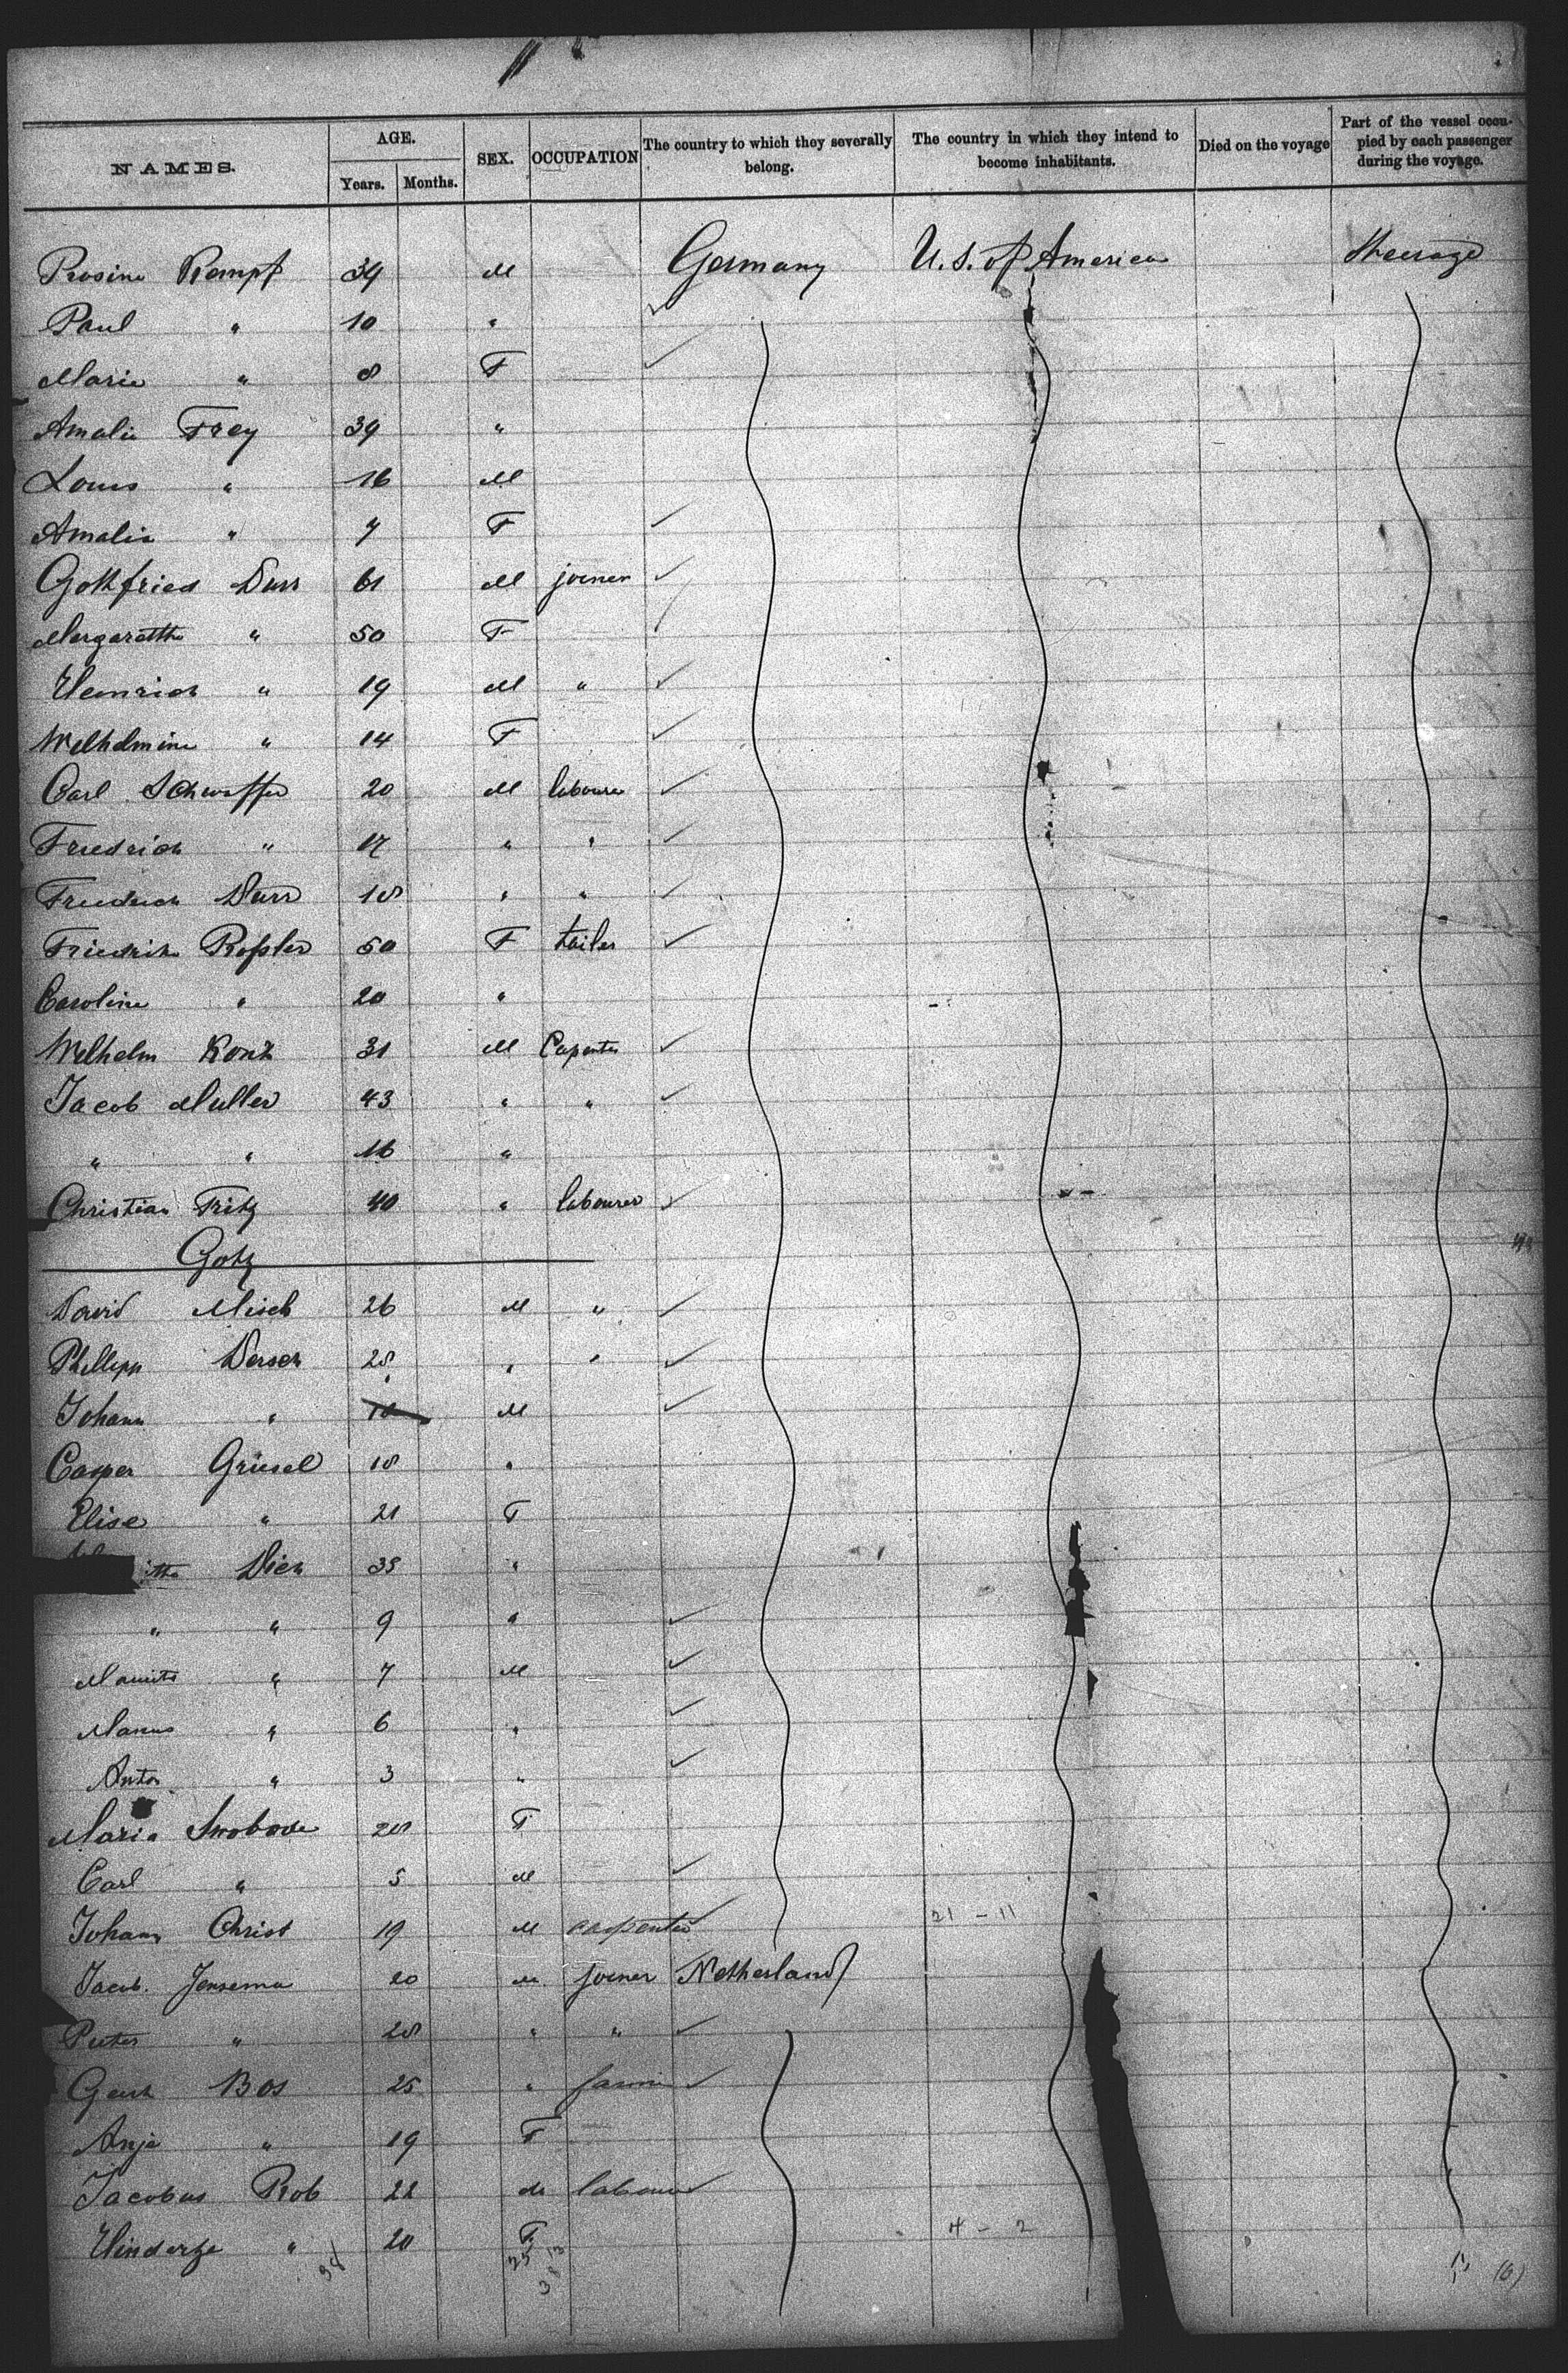 NAMES. AGE. Years. Months. SEX. OCCUPATION The country to which they severally belong. The country in which they intend to become inhabitants. Died on the voyage Part of the vessel occupied by each passenger during the voyage.
Rosine Kempf 34 M Germany U.S. of America Steerage
Paul " 10 "
Marie " 8 F
Amalie Frey 39 "
Louis " 16 M
Amalie " 7 F
Gottfried Durr 61 M joiner
Margarethe " 50 F
Heinrich " 19 M "
Wilhelmine " 14 F
Carl 20 M labourer
Friedrich " 17 " "
Friedrich Durr 18 " "
Friedrike Roßler 50 F tailer
Caroline " 20 "
Wilhelm 31 M Capenter
Jacob Muller 43 " "
" " 16 "
Christian Fritz 40 " labourer
Gotz
David Misch 26 M "
Phillipp 28 " "
Johann " M
Casper Griesel 18 "
Elise " 21 F
Dich 35 "
" " 9 "
" 7 M
" 6 "
Anton " 3 "
Maria Swoboda 28 F
Carl " 5 M
Johann Christ 19 M carpenter 21 - 11
Jacob. Jensema 20 M joiner Netherland
Pieter " 28 " "
Bos 25 " farmer
Anje " 19 F
Jacobus Rob 22 M labourer
Hindertje " 20 F 4 - 2
38 25 13
38
(6)